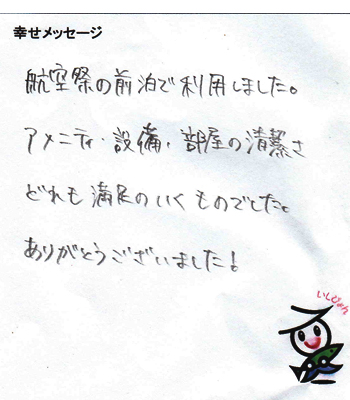 幸せメッセージ
航空祭の前泊で利用しました。
アメニティ・設備・部屋の清潔さ
どれも満足のいくものでした。
ありがとうございました!
いしぴょん